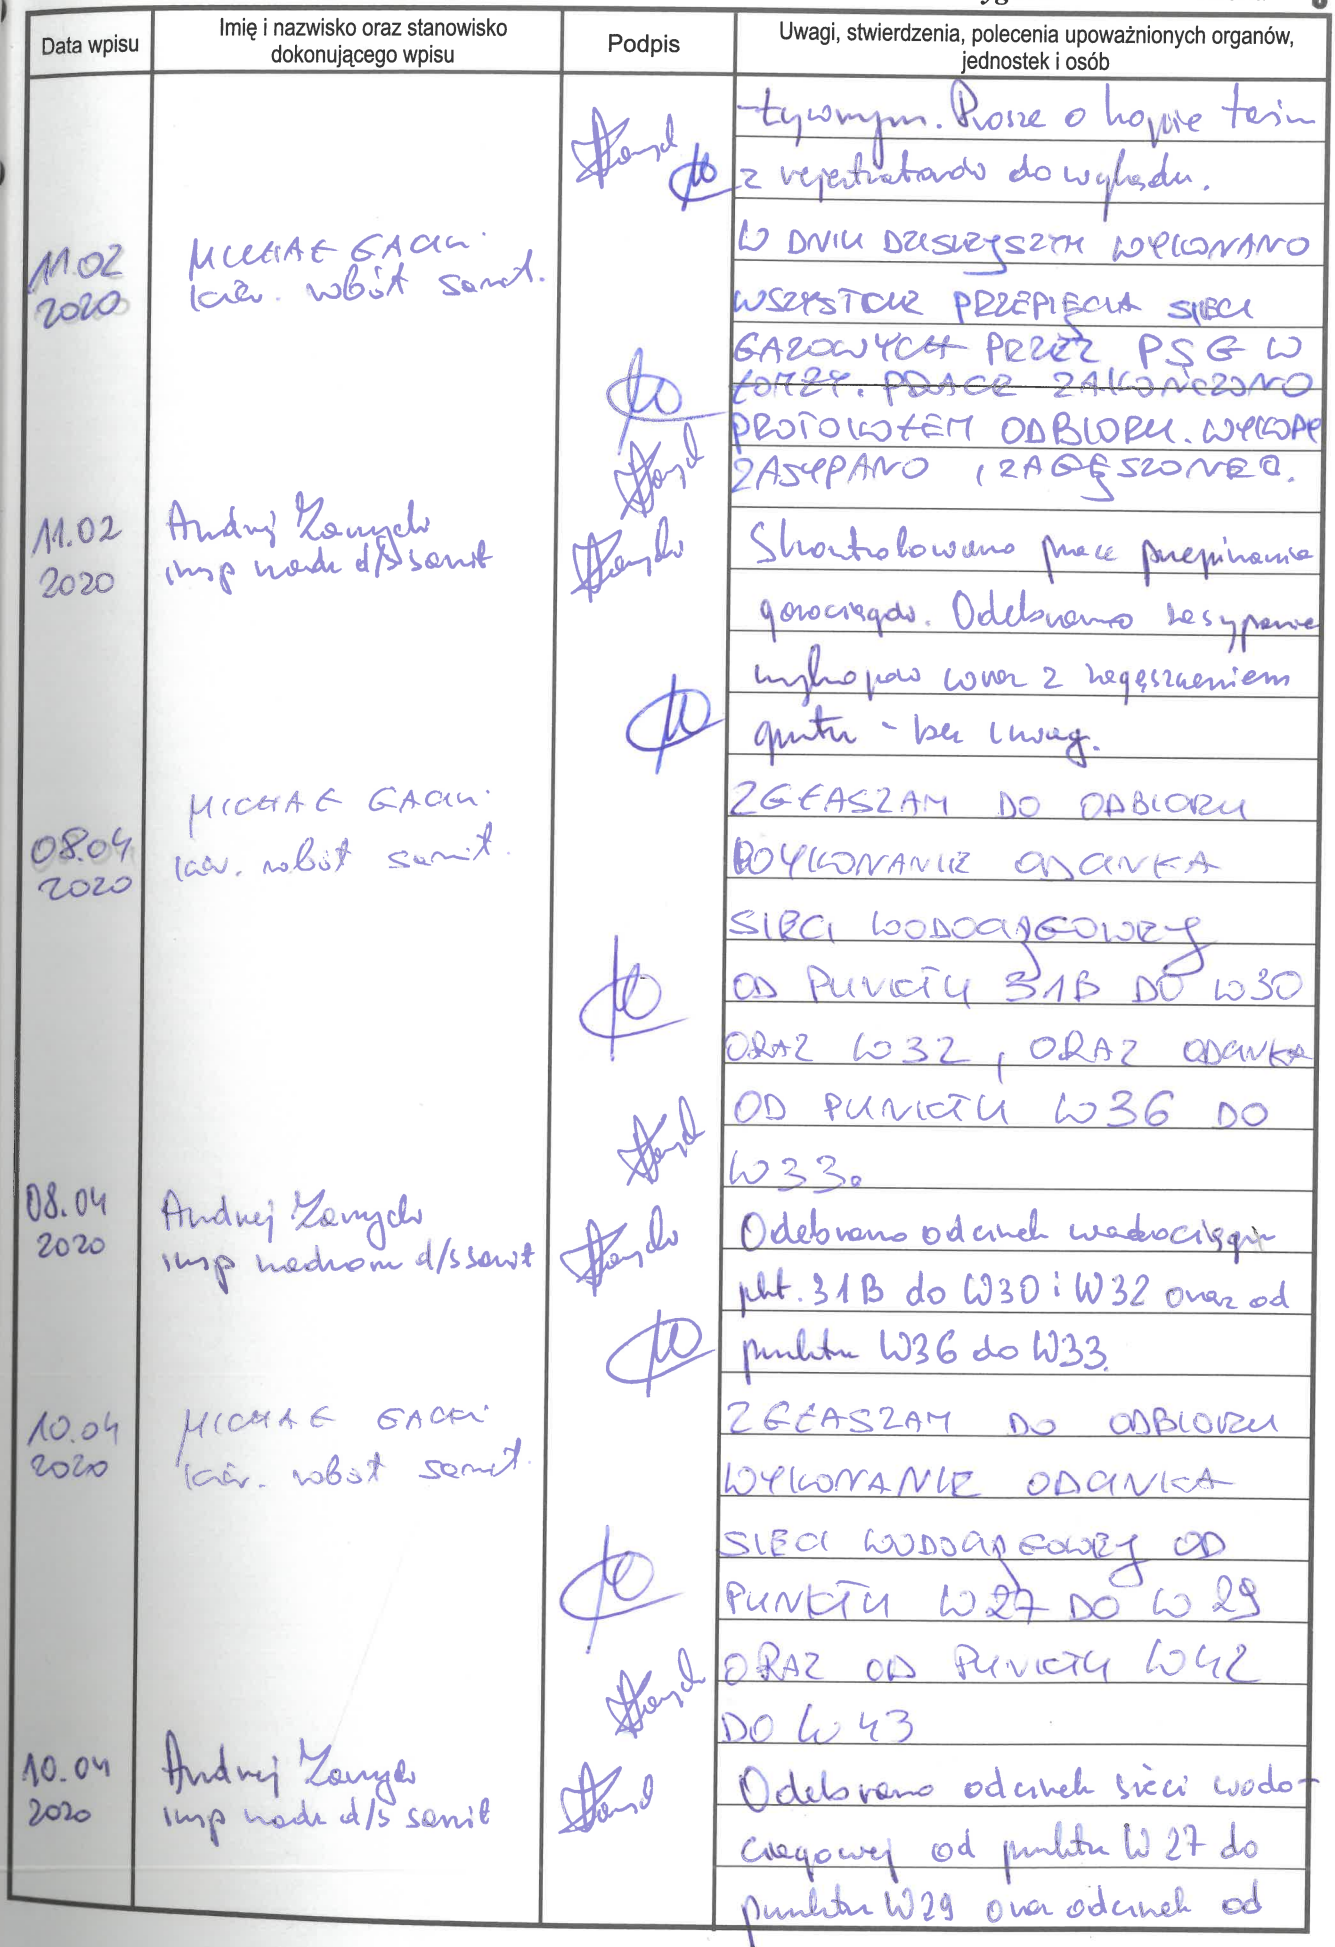 Data wpisu
Imię i nazwisko oraz stanowisko
dokonującego wpisu
Podpis
Uwagi, stwierdzenia, polecenia upoważnionych organów,
jednostek i osób
-tywnym. Proszę o kopie taśm
z rejestratorów do wglądu.
11.02
2020
MICHAŁ GACKI
kier. robót sanit.
W DNIU DZISIEJSZYM WYKONANO
WSZYSTKIE PRZEPIĘCIA SIECI
GAZOWYCH PRZEZ PSG W
ŁOMŻY. PRACE ZAKOŃCZONO
PROTOKOŁEM ODBIORU. WYKOPY
ZASYPANO I ZAGĘSZCZONO.
11.02
2020
Andrzej
insp nadz d/s sanit
Skontrolowano prace przepinania
gazociągów. Odebrano zasypanie
wykopów wraz z zagęszczeniem
gruntu - bez uwag.
08.04
2020
MICHAŁ GACKI
kier. robót sanit.
ZGŁASZAM DO ODBIORU
WYKONANIE ODCINKA
SIECI WODOCIĄGOWEJ
OD PUNKTU 31B DO W30
ORAZ W32, ORAZ ODCINKA
OD PUNKTU W36 DO
W33.
08.04
2020
Andrzej
insp nadzoru d/s sanit
Odebrano odcinek wodociągu
pkt. 31B do W30 i W32 oraz od
punktu W36 do W33.
10.04
2020
MICHAŁ GACKI
kier. robót sanit.
ZGŁASZAM DO ODBIORU
WYKONANIE ODCINKA
SIECI WODOCIĄGOWEJ OD
PUNKTU W27 DO W29
ORAZ OD PUNKTU W42
DO W43
10.04
2020
Andrzej
insp nadz d/s sanit
Odebrano odcinek sieci wodo-
ciągowej od punktu W27 do
punktu W29 oraz odcinek od